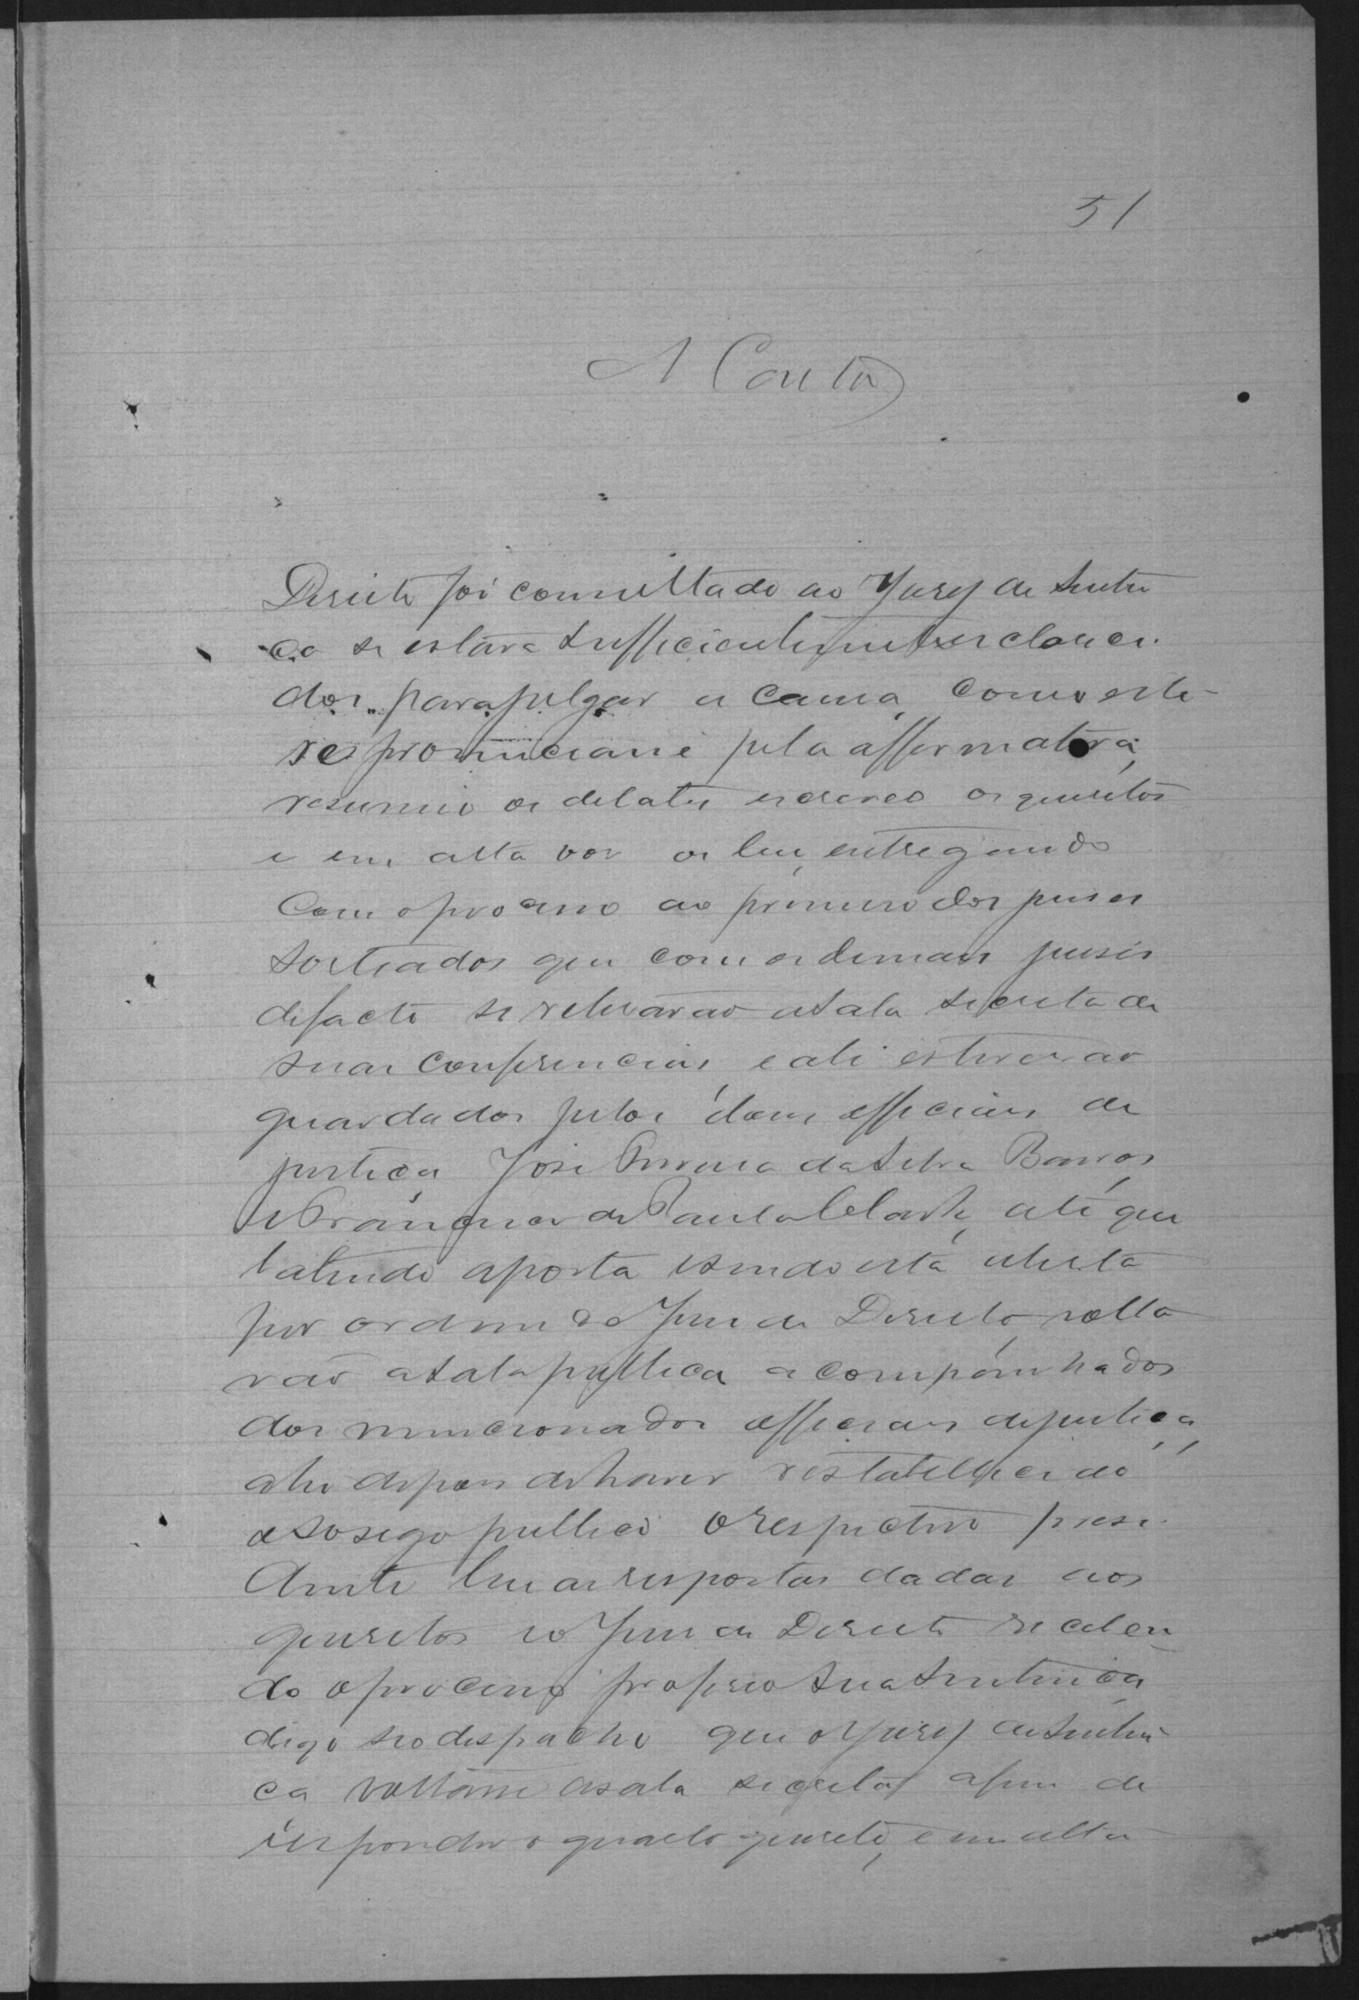 51
A Couto
Direito foi consultado ao Jury de senten
ça se estava sufficientemente esclareci
dos para julgar a causa, como este
respronunciasse pela affermativa,
resumio os debates escreveo os quesitos
e em alta voz os leu, entregando
com o processo ao primeiro dos juises
sorteados que com os demais juises
de facto se retirarão a sala secreta de
suas conferencias, e ali estiverão
guardados pelos dous officiaes de
justiça José Pereira da Silva Barros
e Francisco de Paula, até que
batendo a porta e sendo esta aberta
por ordem do Juiz de Direito, volta
rão a sala publica acompanhados
dos mencionados officiaes de justiça,
ahi depois de haver restabellecido
o sosego publico o respectivo presi
dente leu as respostas dadas aos
quesitos e o Juiz de Direito receben
do o processo proferio sua sentença
digo seo despacho que o Jury de senten
ça voltasse a sala secreta afim de
responder o quarto quesito, e